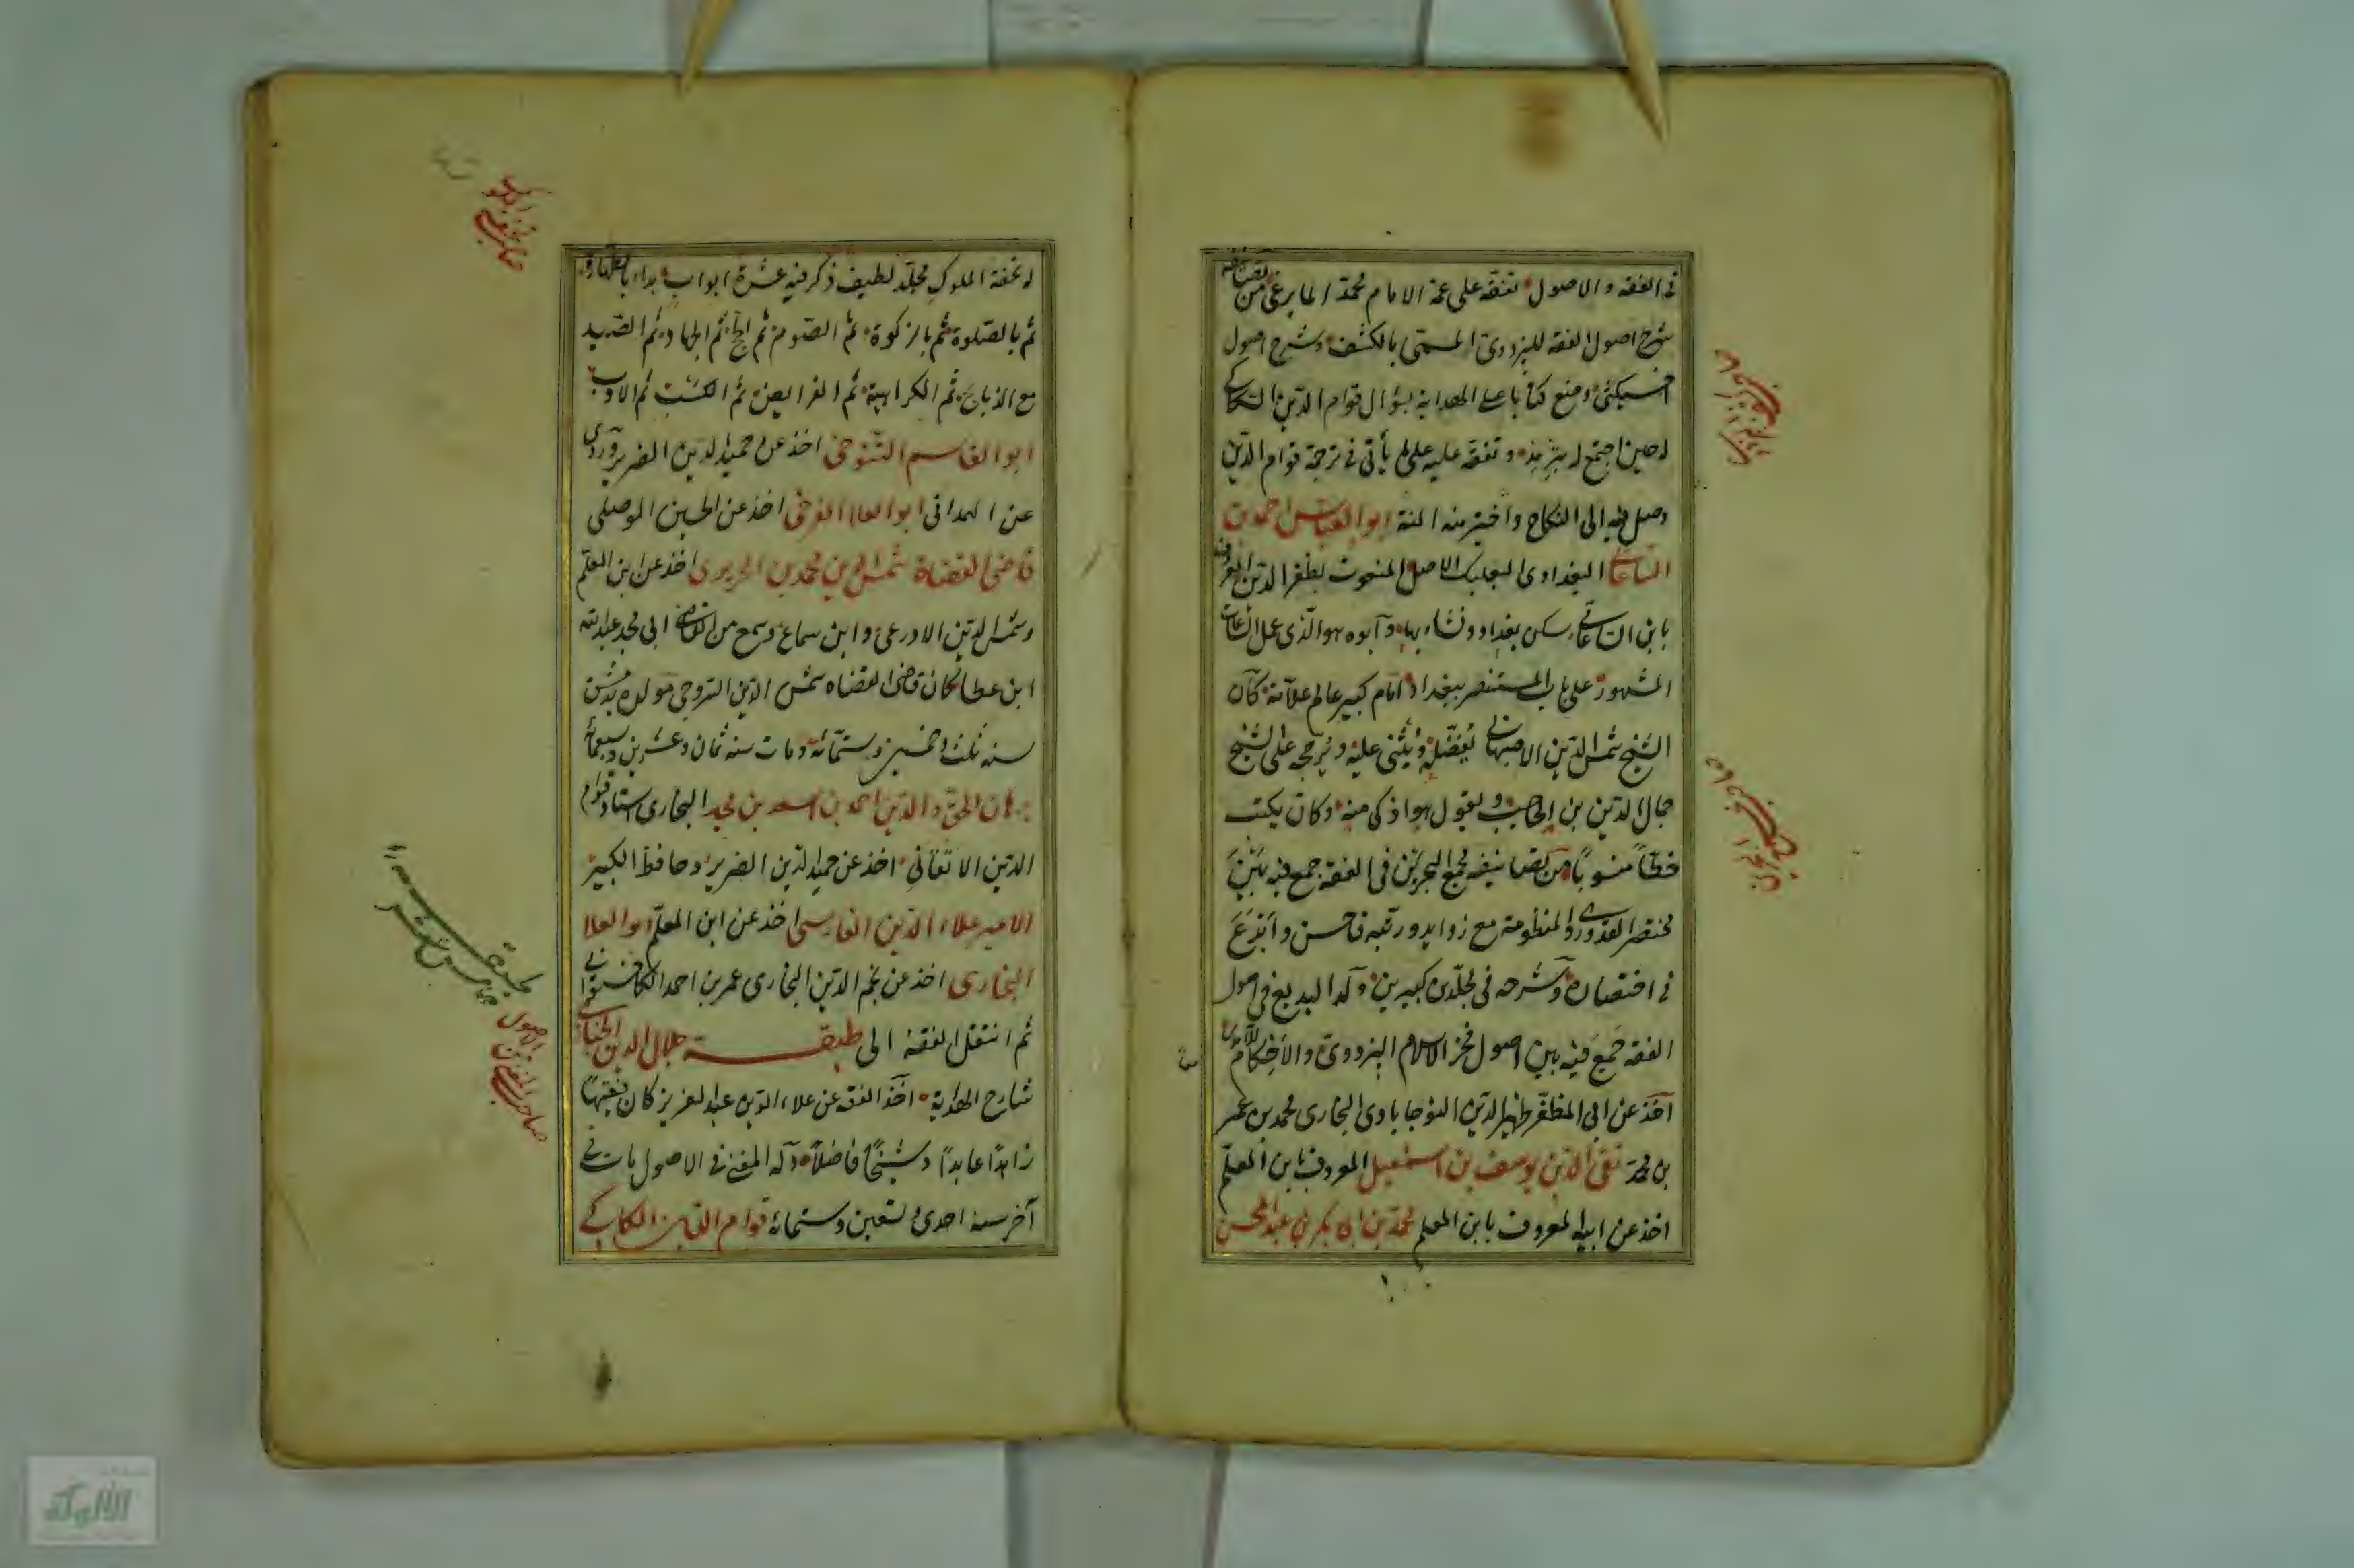 في الفقه والاصول تفقه على عمه الامام محمد المايمرغي من تصانيفه
شرح اصول الفقه للبزدوي المسمى بالكشف وشرح اصول
اخسيكثي وضع كتابا على الهداية بسؤال قوام الدين الكاكي
له حين اجتمع له بترمذ وتفقه عليه على ما يأتي في ترجمة قوام الدين
وصل فيه الى النكاح واخترمته المنية ابو العباس احمد بن
الساعاتي البغدادي البعلبكي الاصل المنعوت بمظفر الدين المعروف
بابن الساعاتي سكن بغداد ونشاء بها وابوه هو الذي عمل الساعات
المشهورة على باب المستنصر ببغداد امام كبير عالم علامة كان
الشيخ شمس الدين الاصبهاني يفضله ويثني عليه ويرجحه على الشيخ
جمال الدين بن الحاجب ويقول هو اذكى منه وكان يكتب
خطا منسوبا من تصانيفه مجمع البحرين في الفقه جمع فيه بين
مختصر القدوري والمنظومة مع زوايد ورتبه فاحسن وابدع
في اختصاره وشرحه في مجلدين كبيرين وله البديع في اصول
الفقه جمع فيه بين اصول فخر الاسلام البزدوي والاحكام للآمدي
اخذ عن ابي المظفر ظهير الدين النوجابادي البخاري محمد بن عمر
بن محمد تقي الدين يوسف بن اسمعيل المعروف بابن المعلم
اخذ عن ابيه المعروف بابن المعلم محمد بن ابي بكر بن عبد المحسن
له تحفة الملوك مجلد لطيف ذكر فيه عشرة ابواب بداء بالطهارة
ثم بالصلوة ثم بالزكوة ثم الصوم ثم الحج ثم الجهاد ثم الصيد
مع الذبايح ثم الكراهية ثم الفرايض ثم الكسب ثم الادب
ابو القاسم التنوخي اخذ عن حميد الدين الضرير وروى
عن الهمداني ابو العلا الفرضي اخذ عن الحسين الموصلي
قاضي القضاة شمس الدين محمد بن الحريري اخذ عن ابن المعلم
وشمس الدين الادرعي وابن سماعة وسمع من القاضي ابي محمد عبد الله
ابن عطا كان قاضي القضاه شمس الدين السروجي مولده بدمشق
سنه ثلث وخمسين وستمائة ومات سنه ثمان وعشرين وسبعمائة
برهان الحق والدين احمد بن اسعد بن محمد البخاري استاد قوام
الدين الاتقاني اخذ عن حميد الدين الضرير وحافظ الكبير
الامير علاء الدين الفارسي اخذ عن ابن المعلم ابو العلا
البخاري اخذ عن نجم الدين البخاري عمر بن احمد الكاخشتواني
ثم انتقل الفقه الى طبقة جلال الدين الخبازي
شارح الهداية اخذ الفقه عن علاء الدين عبد العزيز كان فقيها
زاهدا عابدا وشيخا فاضلا وله المغني في الاصول مات في
آخر سنه احدى وتسعين وستمائة قوام الدين الكاكي
صاحب المغني من الاصول
الألوكة